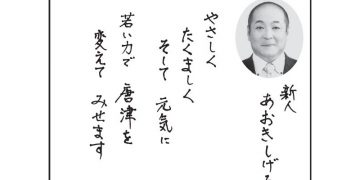 新人
あおきしげ
やさしく
たくましく
そして 元気に
若い力で 唐津を
変えて みせます